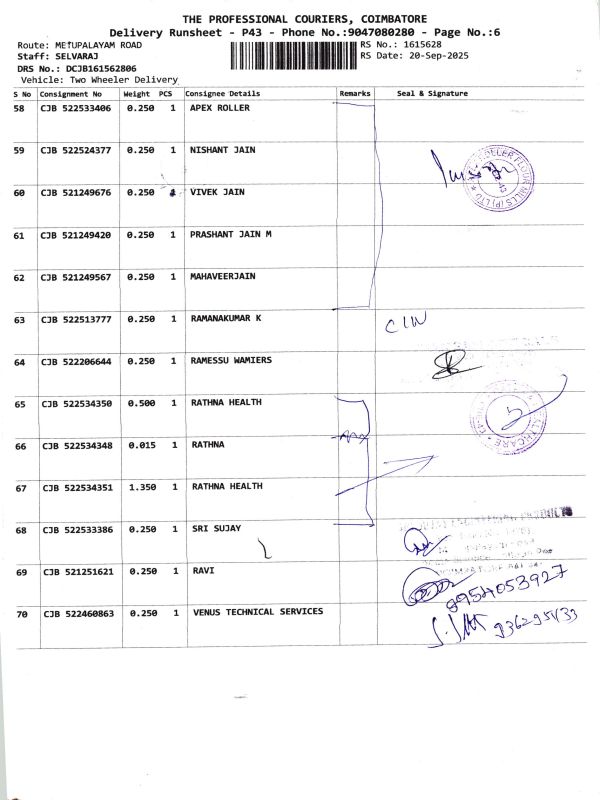 THE PROFESSIONAL COURIERS, COIMBATORE
Delivery Runsheet - P43 - Phone No.:9047080280 - Page No.:6
Route: METUPALAYAM ROAD RS No.: 1615628
Staff: SELVARAJ RS Date: 20-Sep-2025
DRS No.: DCJB161562806
Vehicle: Two Wheeler Delivery
S No Consignment No Weight PCS Consignee Details Remarks Seal & Signature
58 CJB 522533406 0.250 1 APEX ROLLER
59 CJB 522524377 0.250 1 NISHANT JAIN
60 CJB 521249676 0.250 1 VIVEK JAIN
61 CJB 521249420 0.250 1 PRASHANT JAIN M
62 CJB 521249567 0.250 1 MAHAVEERJAIN
63 CJB 522513777 0.250 1 RAMANAKUMAR K
64 CJB 522206644 0.250 1 RAMESSU WAMIERS
65 CJB 522534350 0.500 1 RATHNA HEALTH
66 CJB 522534348 0.015 1 RATHNA
67 CJB 522534351 1.350 1 RATHNA HEALTH
68 CJB 522533386 0.250 1 SRI SUJAY
69 CJB 521251621 0.250 1 RAVI
8954053927
70 CJB 522460863 0.250 1 VENUS TECHNICAL SERVICES